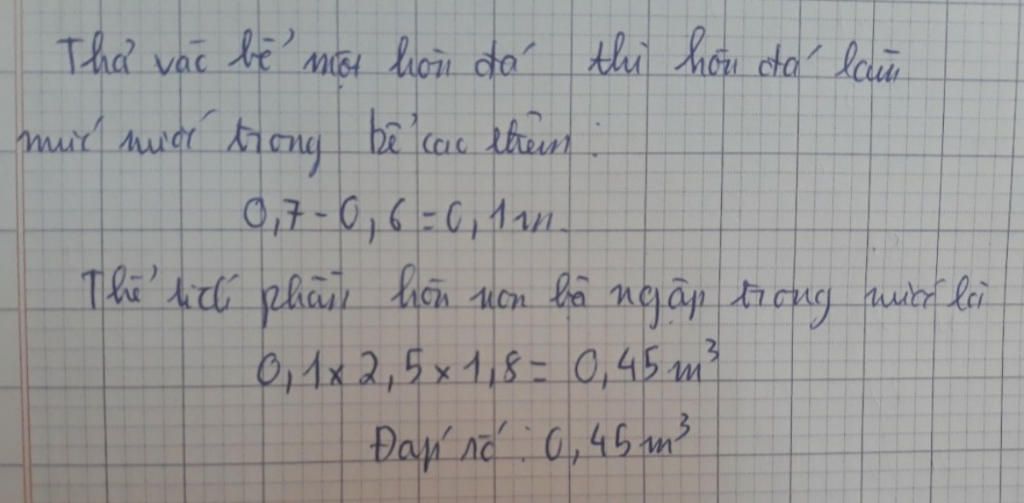 Thả vào bể một hòn đá thì hòn đá làm
mực nước trong bể cao thêm :
0,7 - 0,6 = 0,1 m.
Thể tích phần hòn non bộ ngập trong nước là
0,1 x 2,5 x 1,8 = 0,45 m³
Đáp số : 0,45 m³